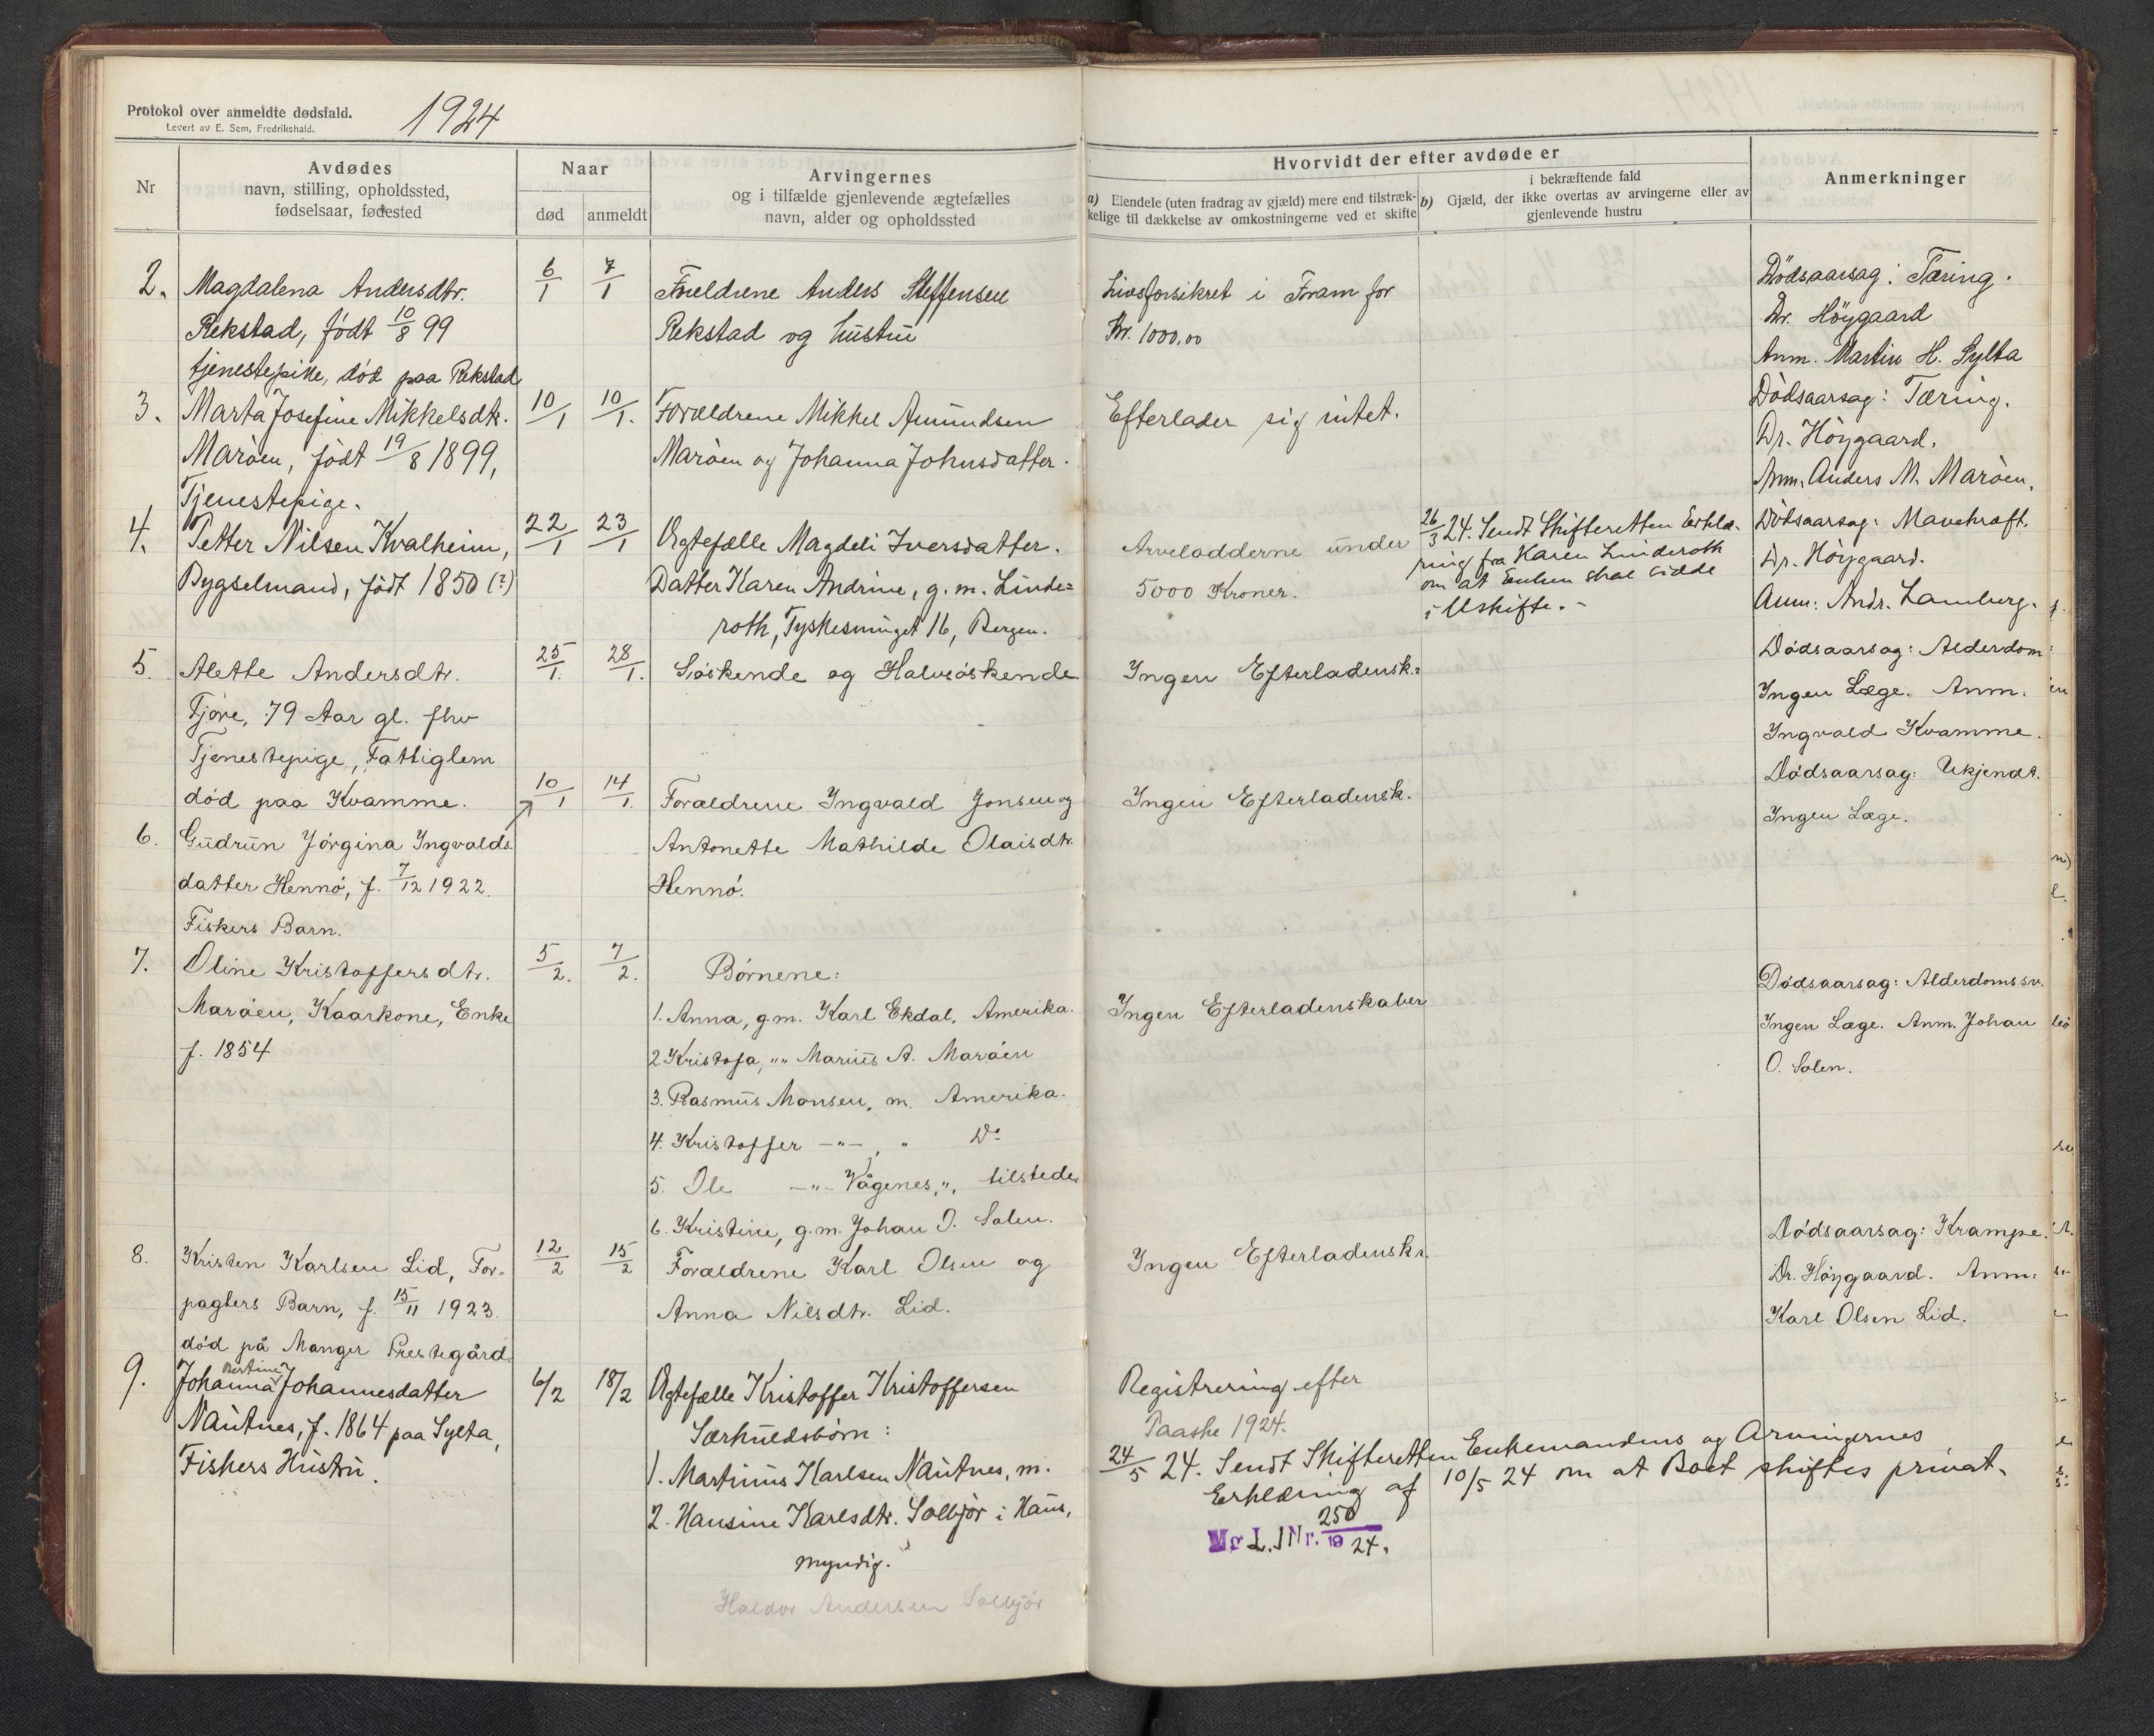 Protokol over anmeldte dødsfald.
Levert av E. Sem, Fredrikshald.
1924
Nr
Avdødes
navn, stilling, opholdssted,
fødselsaar, fødested
Naar
død
anmeldt
Arvingernes
og i tilfælde gjenlevende ægtefælles
navn, alder og opholdssted
Hvorvidt der efter avdøde er
a) Eiendele (uten fradrag av gjæld) mere end tilstræk-
kelige til dækkelse av omkostningerne ved et skifte
i bekræftende fald
b) Gjæld, der ikke overtas av arvingerne eller av
gjenlevende hustru
Anmerkninger
2.
Magdalena Andersdtr.
Rekstad, født 10/8 99
tjenestepike, død paa Rekstad
6/1
7/1
Foreldrene Anders Steffensen
Rekstad og hustru
Livsforsikret i Fram for
Kr. 1000,00
Dödsaarsag: Tæring.
Dr. Höygaard
Anm. Martin H. Sylta
3.
Marta Josefine Mikkelsdtr.
Marøen, født 19/8 1899,
Tjenestepige.
10/1
10/1.
Forældrene Mikkel Amundsen
Marøen og Johanna Johnsdatter.
Efterlader sig intet.
Dødsaarsag: Tæring.
Dr. Höygaard.
Anm. Anders M. Marøen.
4.
Petter Nilsen Kvalheim,
Bygselmand, født 1850 (?)
22/1
23/1
Ægtefælle Magdeli Iversdatter.
Datter Karen Andrine, g. m. Linde=
roth, Tyskesmuget 16, Bergen.
Arveladderne under
5000 Kroner.
26/3 24. Sendt Skifteretten Erklæ-
ring fra Karen Linderoth
om at Enken skal sidde
i Uskifte. -
Dødsaarsag: Mavekræft.
Dr. Höygaard.
Anm: Andr. Lamberg.
5.
Alette Andersdtr.
Fjøre, 79 Aar gl. fhv
Tjenestepige, Fattiglem
død paa Kvamme.
25/1.
28/1.
Søskende og Halvsøskende
Ingen Efterladensk:
Dødsaarsag: Alderdom
Ingen Læge. Anm.
Ingvald Kvamme.
6.
Gudrun Jørgina Ingvalds
datter Hennø, f. 7/12 1922.
Fiskers Barn.
10/1
14/1.
Forældrene Ingvald Jonsen og
Antonette Mathilde Olaisdtr.
Hennø.
Ingen Efterladensk.
Dødsaarsag: Ukjendt.
Ingen Læge.
7.
Oline Kristoffersdtr.
Marøen, Kaarkone, Enke
f. 1854
5/2.
7/2.
Børnene:
1. Anna, g.m. Karl Ekdal, Amerika.
2 Kristofa, „„ Marius A. Marøen
3. Rasmus Monsen, m. Amerika.
4. Kristoffer -„-, „ Do
5. Ole -„- Vågenes, „, tilstede
6. Kristine, g.m. Johan O. Solen.
Ingen Efterladenskaber
Dødsaarsag: Alderdomssv.
Ingen Læge. Anm. Johan
O. Solen.
8.
Kristen Karlsen Lid, For-
pagters Barn, f. 15/11 1923.
død på Manger Prestegård.
12/2
15/2
Forældrene Karl Olsen og
Anna Nilsdtr. Lid.
Ingen Efterladensk:.
Dødsaarsag: Krampe.
Dr. Höygaard. Anm:
Karl Olsen Lid.
9.
Bertine
Johanna Johannesdatter
Nautnes, f. 1864 paa Sylta,
Fiskers Hustru.
6/2
18/2
Ægtefælle Kristoffer Kristoffersen
Særkuldsbørn:
1. Martinus Karlsen Nautnes, m.
2. Hansine Karlsdtr. Solbjør i Haus,
myndig.
Haldor Andersen Solbjør
Registrering efter
Paaske 1924.
24/5 24. Sendt Skifteretten Enkemandens og Arvingernes
Erklæring af 10/5 24 om at Boet skiftes privat.
Mg L. J Nr. 250/19 24.